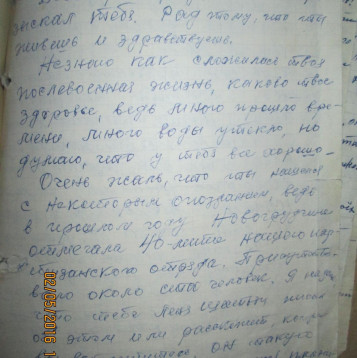 зыскал тебя. Рад тому, что ты
живешь и здравствуешь.
Незнаю как сложилась твоя
послевоенная жизнь, каково твое
здоровье, ведь много прошло вре-
мени, много воды утекло, но
думаю, что у тебя все хорошо.
Очень жаль, что ты нашелся
с некоторым опозданием, ведь
в прошлом году Новогрудчина
отмечала 40-летие нашего пар-
тизанского отряда. Присутство-
вало около ста человек. Я
что тебе
об этом или расскажет,
он
02/05/2016